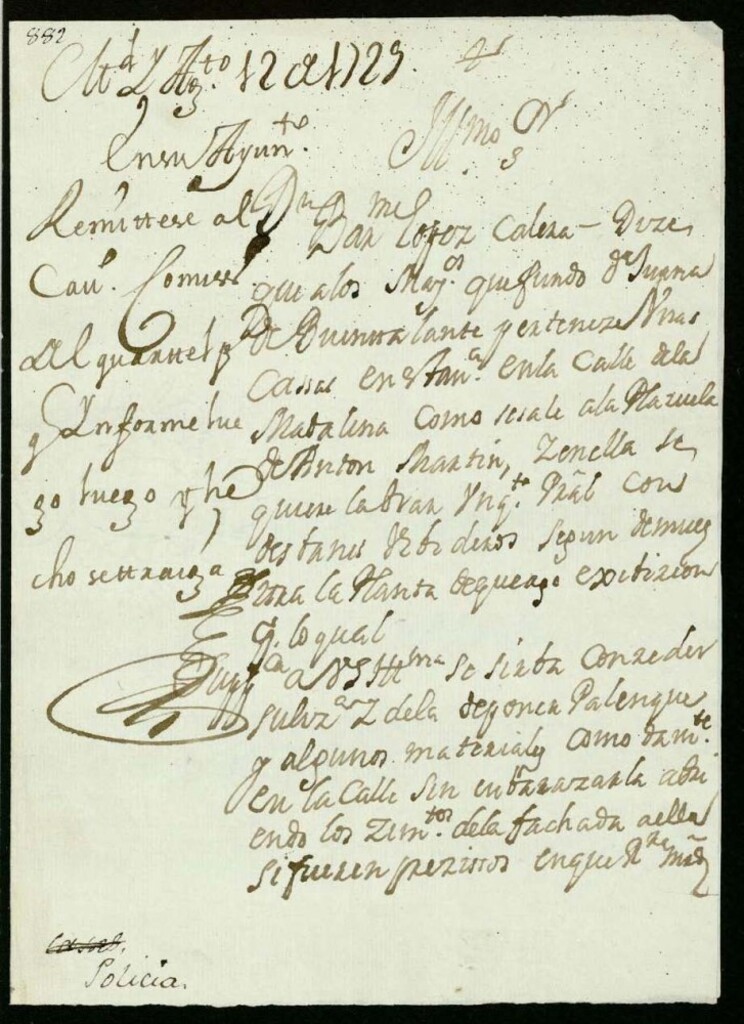 882
Md y Agto 12 de 1729.
En su Ayunto.
Remittese al
Cavo. Comisso
del quarttel pa
q Ynforme lue
go luego y he
cho se ttraiga
Illmo Sr
Dn Damel Lopez Calera - Dize
que a los Mays. que fundo Da Juana
de Buenttalante perteneze Unas
Cassas en esta Va. en la Calle de la
Madalena como se sale a la Plazuela
de Anton Martin, y en ella se
quiere labrar Pral con
segun demues
tra la Planta de que ago exibizion
P. lo qual
Suppca a VS Illma se sirba conzeder
su lyza y la de poner Palenque
y algunos materiales
en la Calle sin enbarazarla abri
endo los Zimtos de la fachada a ella
si fueren prezissos en que Rre md
Casas.
Policia.